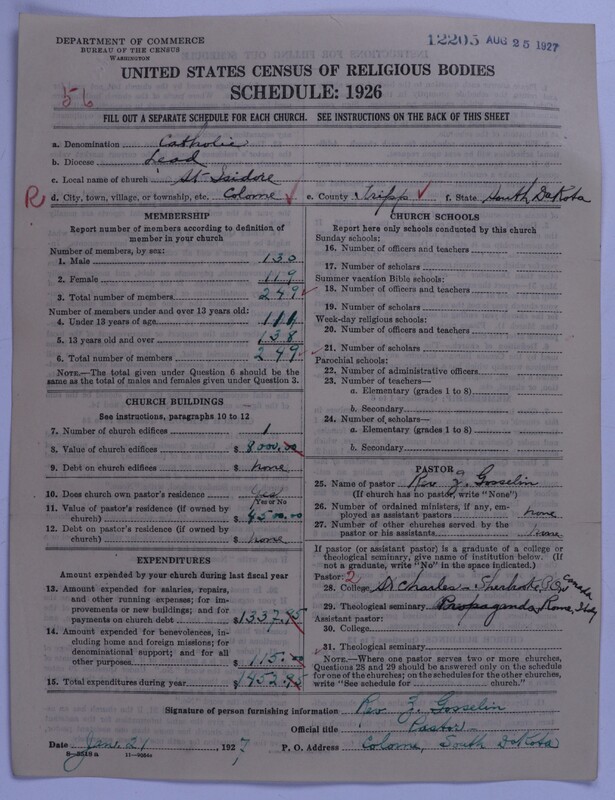 DEPARTMENT OF COMMERCE
BUREAU OF THE CENSUS
WASHINGTON
12205 AUG 25 1927
UNITED STATES CENSUS OF RELIGIOUS BODIES
SCHEDULE: 1926
56
FILL OUT A SEPARATE SCHEDULE FOR EACH CHURCH. SEE INSTRUCTIONS ON THE BACK OF THIS SHEET
a. Denomination Catholic
b. Diocese Lead
c. Local name of church St Isidore
R d. City, town, village, or township, etc. Colome e. County Tripp f. State South Dakota
MEMBERSHIP
Report number of members according to definition of
member in your church
Number of members, by sex:
1. Male 130
2. Female 119
3. Total number of members 249
Number of members under and over 13 years old:
4. Under 13 years of age 111
5. 13 years old and over 138
6. Total number of members 249
NOTE.—The total given under Question 6 should be
same as the total of males and females given under Question 3.
CHURCH BUILDINGS
See instructions, paragraphs 10 to 12
7. Number of church edifices 1
8. Value of church edifices $ 8000.00
9. Debt on church edifices $ none
10. Does church own pastor's residence Yes
Yes or No
11. Value of pastor's residence (if owned by
church) $ 4500.00
12. Debt on pastor's residence (if owned by
church) $ none
EXPENDITURES
Amount expended by your church during last fiscal year
13. Amount expended for salaries, repairs,
and other running expenses; for im-
provements or new buildings; and for
payments on church debt $ 1337.95
14. Amount expended for benevolences, in-
cluding home and foreign missions; for
denominational support; and for all
other purposes $ 115.00
15. Total expenditures during year $ 1452.95
CHURCH SCHOOLS
Report here only schools conducted by this church
Sunday schools:
16. Number of officers and teachers
17. Number of scholars
Summer vacation Bible schools:
18. Number of officers and teachers
19. Number of scholars
Week-day religious schools:
20. Number of officers and teachers
21. Number of scholars
Parochial schools:
22. Number of administrative officers
23. Number of teachers—
a. Elementary (grades 1 to 8)
b. Secondary
24. Number of scholars—
a. Elementary (grades 1 to 8)
b. Secondary
PASTOR
25. Name of pastor Rev Z. Gosselin
(If church has no pastor, write "None")
26. Number of ordained ministers, if any, em-
ployed as assistant pastors none
27. Number of other churches served by the
pastor or his assistants none
If pastor (or assistant pastor) is a graduate of a college or
theological seminary, give name of institution below. (If
not a graduate, write "No" in the space indicated.)
Pastor: 2
28. College St Charles - P.Q. Canada
29. Theological seminary Propaganda, Rome, Italy
Assistant pastor:
30. College
31. Theological seminary
NOTE.—Where one pastor serves two or more churches,
Questions 28 and 29 should be answered only on the schedule
for one of the churches; on the schedules for the other churches,
write "See schedule for church."
Signature of person furnishing information Rev Z. Gosselin
Official title Pastor
Date Jan. 21, 1927 P. O. Address Colome, South Dakota